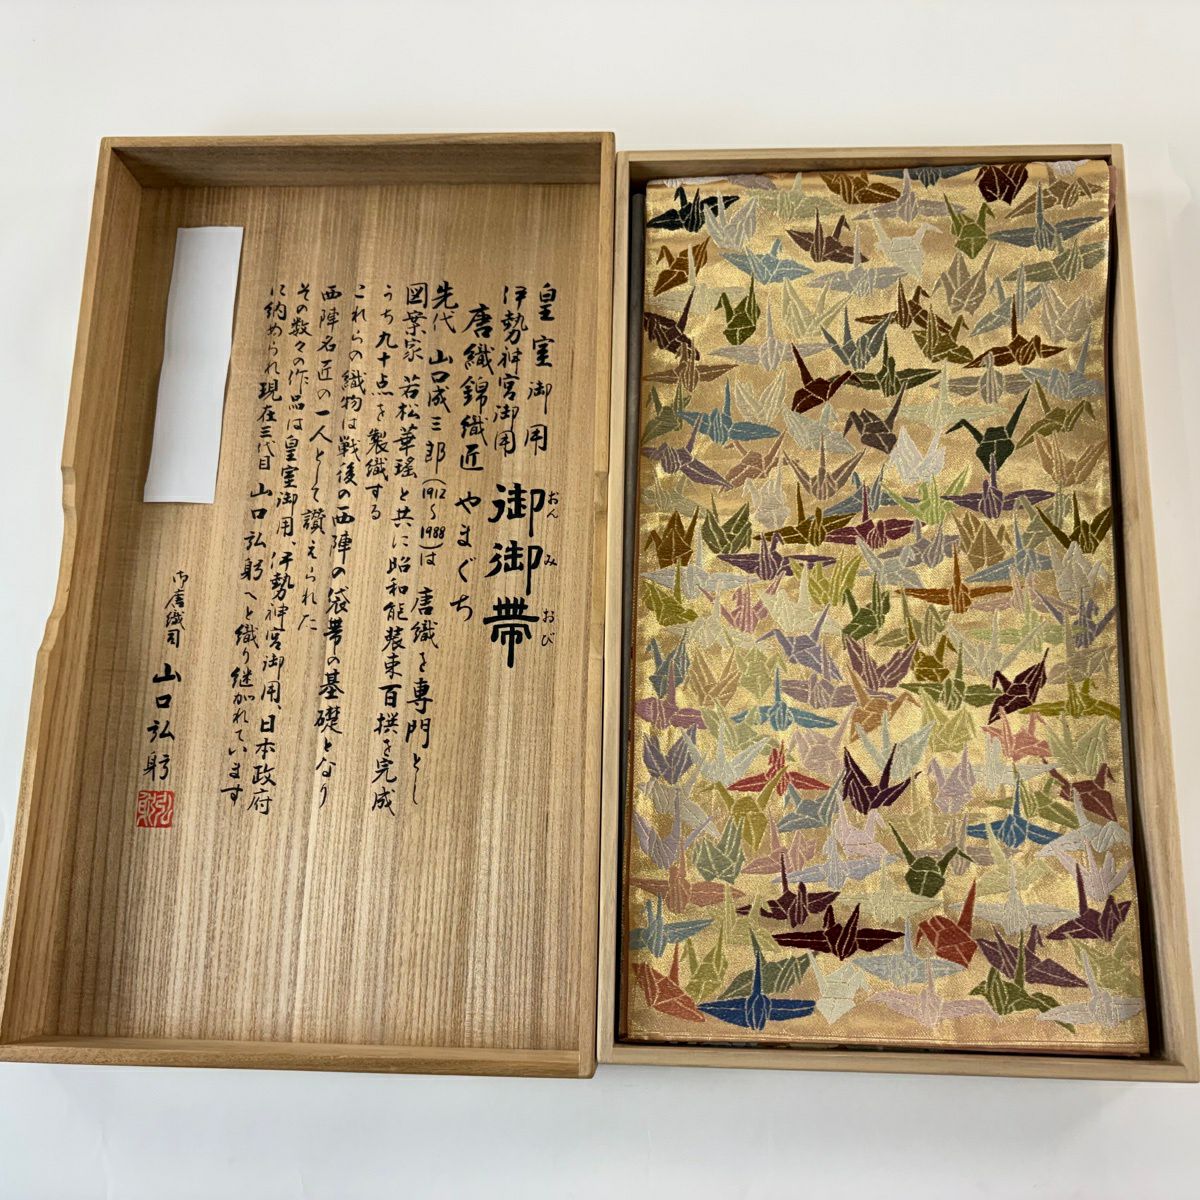 皇室御用
伊勢神宮御用
御御帯
おんみおび
唐織錦織匠 やまぐち
先代 山口成三郎(1912〜1988)は 唐織を専門とし
図案家 若松華瑶と共に昭和能装束百撰を完成
うち九十点を製織する
これらの織物は戦後の西陣の袋帯の基礎となり
西陣名匠の一人として讃えられた
その数々の作品は皇室御用、伊勢神宮御用、日本政府
に納められ現在三代目 山口弘躬へと織り継がれています
御唐織司 山口弘躬
弘躬